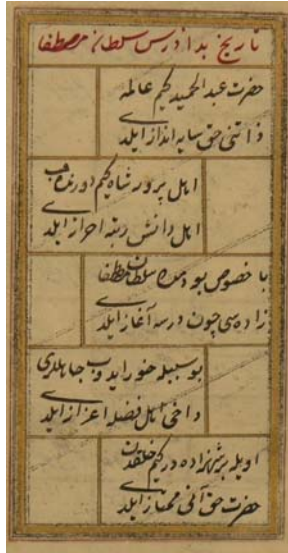 تاریخ بدا درس سلطان مصطفا
حضرت عبد الحمید کیم عالمه
ذاتنی حق سایه انداز ایلدی
اهل پرور شاه کیم دورنده هپ
اهل دانش رتبه احراز ایلدی
با خصوص بو دمده سلطان مصطفا
زاده سی چون درسه آغاز ایلدی
بو سبیله خورایدوب جاهلری
داخی اهل فضله اعزاز ایلدی
اویله بر شهزاده در کیم خلقدن
حضرت حق آنی ممتاز ایلدی